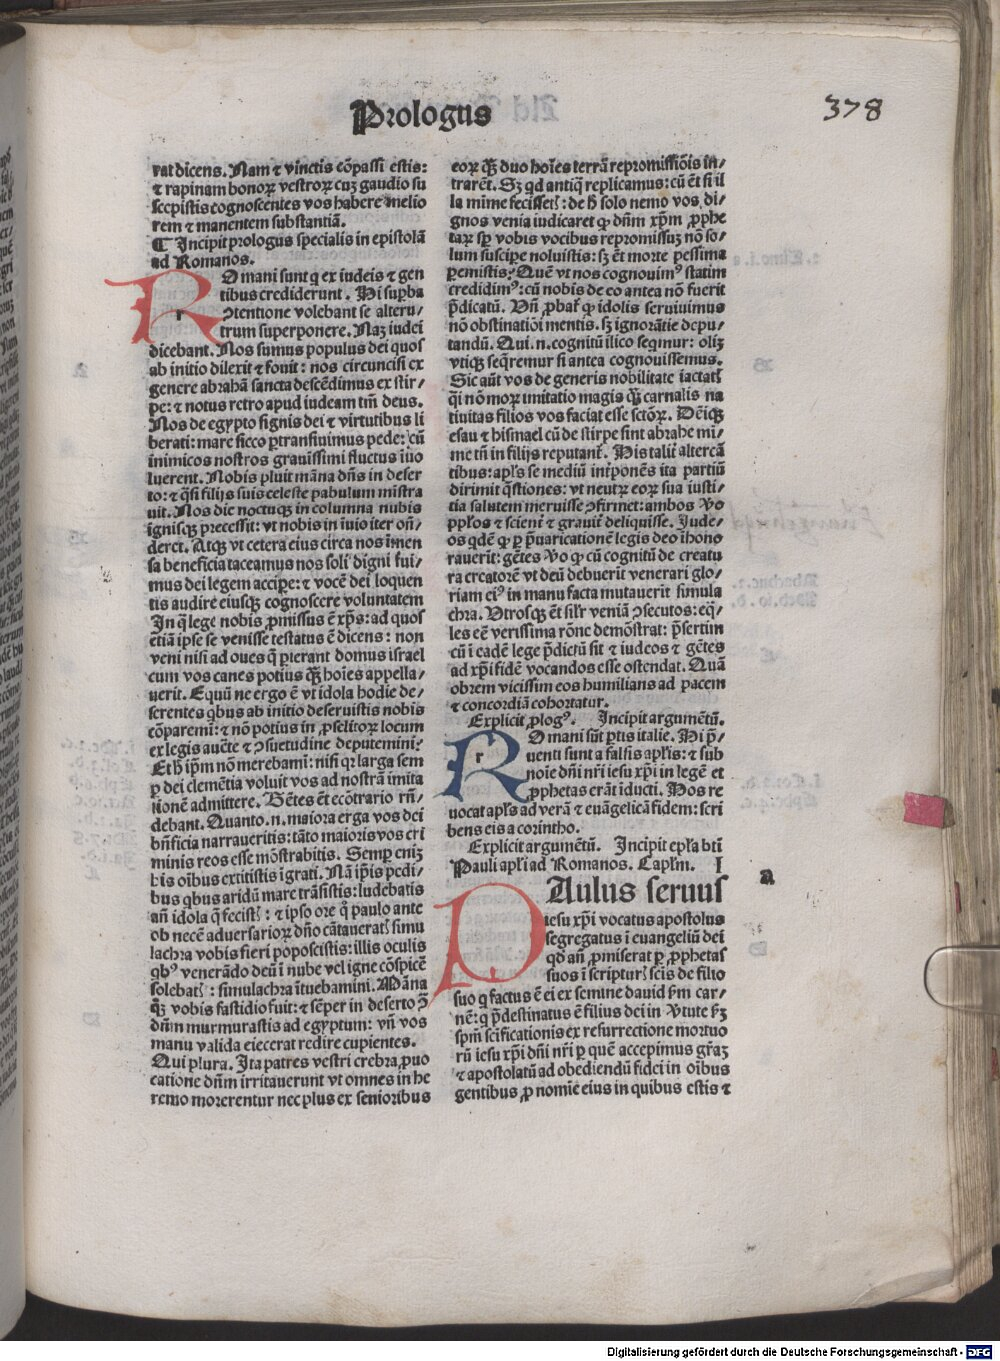 Prologus
378
rat dicens. Nam ⁊ vinctis cōpassi estis:
⁊ rapinam bonoꝝ vestroꝝ cuꝫ gaudio su
scepistis cognoscentes vos habere melio
rem ⁊ manentem substantiā.
¶ Incipit prologus specialis in epistolā
ad Romanos.
ROmani sunt q̇ ex iudeis ⁊ gen
tibus crediderunt. Hi supba
ꝯtentione volebant se alteru/
trum superponere. Naꝫ iudei
dicebant. Nos sumus populus dei quos
ab initio dilexit ⁊ fouit: nos circuncisi ex
genere abrahā sancta descēdimus ex stir/
pe: ⁊ notus retro apud iudeam tm̄ deus.
Nos de egypto signis dei ⁊ virtutibus li
berati: mare sicco ꝑtransiuimus pede: cū
inimicos nostros grauissimi fluctus īuo
luerent. Nobis pluit māna dn̄s in deser
to: ⁊ q̄si filijs suis celeste pabulum mīstra
uit. Nos die noctuqꝫ in columna nubis
ignisqꝫ precessit: vt nobis in inuio iter on̄/
deret. Atqꝫ vt cetera eius circa nos īmen
sa beneficia taceamus nos soli digni fui/
mus dei legem accipe: ⁊ vocē dei loquen
tis audire eiusqꝫ cognoscere voluntatem
In q̇ lege nobis ꝓmissus ē xp̄s: ad quos
etiā ipse se venisse testatus ē dicens: non
veni nisi ad oues q̄ ꝑierant domus israel
cum vos canes potius qꝫ̄ hoīes appella/
uerit. Equū ne ergo ē vt idola hodie de/
serentes q̇bus ab initio deseruistis nobis
cōparemi: ⁊ nō potius in ꝓselitoꝝ locum
ex legis aucte ⁊ ꝯsuetudine deputemini?
Et h̄ ipm̄ nō merebami: nisi qꝛ larga sem
ꝑ dei clemētia voluit vos ad nostrā imita
tionē admittere. Gētes ēt ecōtrario rn̄/
debant. Quanto.n. maiora erga vos dei
bn̄ficia narraueritis: tāto maioris vos cri
minis reos esse mōstrabitis. Semp eniꝫ
his oībus extitistis īgrati. Nā īpis pedi/
bus q̇bus aridū mare trāsistis: ludebatis
añ idola q̄ fecistꝭ: ⁊ ipso ore q̇ paulo ante
ob necē aduersarioꝝ dn̄o cātaueratꝭ simu
lachra vobis fieri poposcistis: illis oculis
q̇bꝰ venerādo deū ī nube vel igne cōspicē
solebatꝭ: simulachra ītuebamini. Māna
qꝫ vobis fastidio fuit: ⁊ sēper in deserto ꝯ̄
dn̄m murmurastis ad egyptum: vn̄ vos
manu valida eiecerat redire cupientes.
Qui plura. Ita patres vestri crebra ꝓuo
catione dn̄m irritauerunt vt omnes in he
remo morerentur nec plus ex senioribus
eoꝝ qꝫ̄ duo hoīes terrā repromissiōis in/
trarēt. Sꝫ qd antiq̄ replicamus: cū ēt si il
la mīme fecissetꝭ: de h̄ solo nemo vos di/
gnos venia iudicaret ꝙ dn̄m xp̄m ꝓphe
taꝝ sꝑ vobis vocibus repromissuꝫ nō so/
lum suscipe noluistis: sꝫ ēt morte pessima
ꝑemistis: Quē vt nos cognouimꝰ statim
credidimꝰ: cū nobis de eo antea nō fuerit
p̄dicatū. Vn̄ ꝓbatꝭ ꝙ idolis seruiuimus
nō obstinatiōi mentis. sꝫ ignorātie depu/
tandū. Qui.n. cognitū ilico seq̇mur: oliꝫ
vtiqꝫ seq̄remur si antea cognouissemus.
Sic aūt vos de generis nobilitate iactatꝭ
q̇i nō moꝝ imitatio magis qꝫ̄ carnalis na
tiuitas filios vos faciat esse sctōꝝ. Dēiqꝫ
esau ⁊ hismael cū de stirpe sint abrahe mi/
me tn̄ in filijs reputant̄. His talit̄ altercā
tibus: apl̄s se mediū int̄ponēs ita partiū
dirimit q̄stiones: vt neutꝝ eoꝝ sua iusti/
tia salutem meruisse ꝯfirmet: ambos ỽo
pp̄los ⁊ scient̄ ⁊ grauit̄ deliquisse. Iude/
os qdē ꝙ ꝑ p̄uaricationē legis deo īhono
rauerīt: gētes ỽo ꝙ cū cognitū de creatu
ra creatorē vt deū debuerit venerari glo/
riam eiꝰ in manu facta mutauerit simula
chra. Vtrosqꝫ ēt sil̄r veniā ꝯsecutos: eq̄/
les eē verissima rōne demōstrat: p̄sertim
cū ī eadē lege p̄dictū sit ⁊ iudeos ⁊ gētes
ad xp̄i fidē vocandos esse ostendat. Quā
obrem vicissim eos humilians ad pacem
⁊ concordiā cohortatur.
Explicit ꝓlogꝰ. Incipit argumētū.
ROmani sūt ꝑtis italie. Hi p̄/
uenti sunt a falsis apl̄is: ⁊ sub
noīe dn̄i nr̄i iesu xp̄i in legē et
ꝓphetas erāt īducti. Hos re
uocat apl̄s ad verā ⁊ euāgelicā fidem: scri
bens eis a corintho.
Explicit argumētū. Incipit epl̄a bt̄i
Pauli apl̄i ad Romanos. Caplm̄. I
PAulus seruus
a
iesu xp̄i vocatus apostolus
segregatus ī euangeliū dei
qd̄ añ ꝓmiserat ꝑ ꝓphetas
suos ī scripturꝭ scīs de filio
suo q̇ factus ē ei ex semine dauid ẜm car/
nē: q̇ p̄destinatus ē filius dei in ỽtute ẜꝫ
spm̄ scīficationis ex resurrectione mortuo
rū iesu xp̄i dn̄i nr̄i ꝑ quē accepimus gr̄aꝫ
⁊ apostolatū ad obediendū fidei in oībus
gentibus ꝓ nomīe eius in quibus estis ⁊
Digitalisierung gefördert durch die Deutsche Forschungsgemeinschaft - DFG